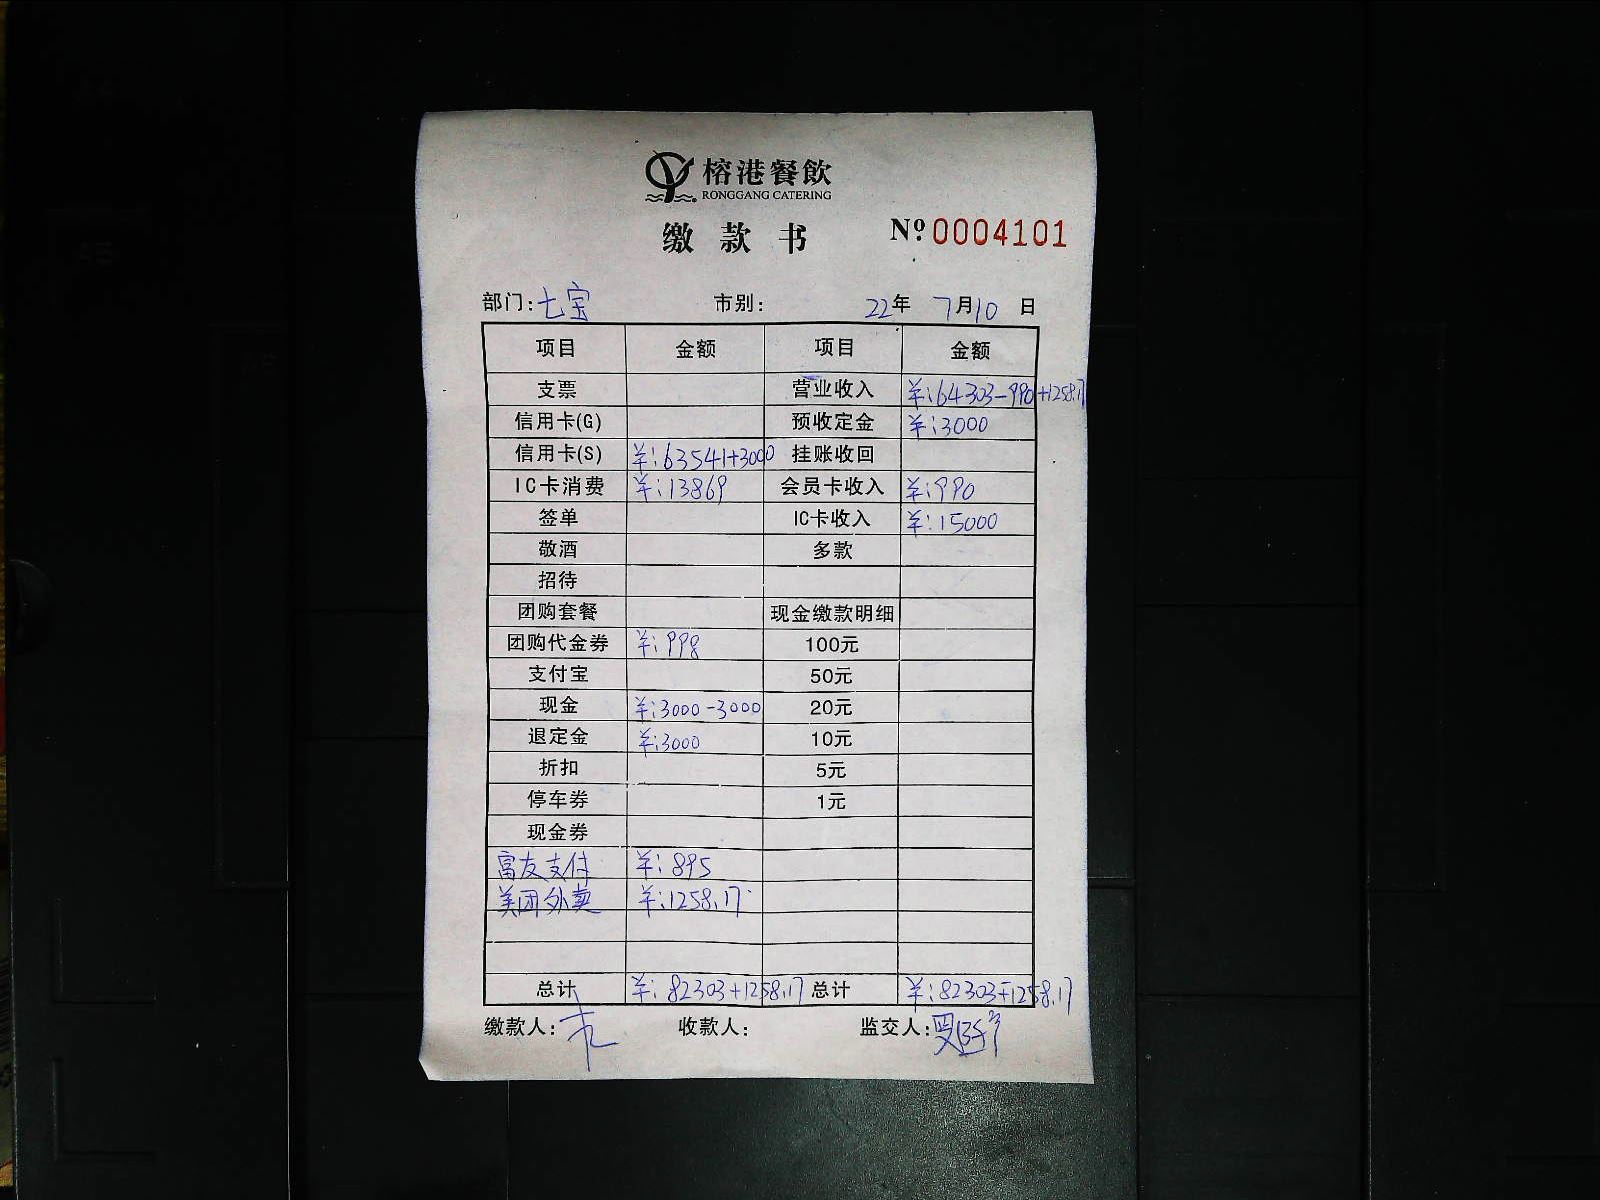 榕港餐飲
RONGGANG CATERING
缴款书 Nº 0004101
部门:七宝 市别: 22年 7月10日
项目 金额 项目 金额
支票 营业收入 ¥:64303-990+1258.17
信用卡(G) 预收定金 ¥:3000
信用卡(S) ¥:63541+3000 挂账收回
IC卡消费 ¥:13869 会员卡收入 ¥:990
签单 IC卡收入 ¥:15000
敬酒 多款
招待
团购套餐 现金缴款明细
团购代金券 ¥:998 100元
支付宝 50元
现金 ¥:3000-3000 20元
退定金 ¥:3000 10元
折扣 5元
停车券 1元
现金券
富友支付 ¥:895
美团外卖 ¥:1258.17
总计 ¥:82303+1258.17 总计 ¥:82303+1258.17
缴款人: 收款人: 监交人: